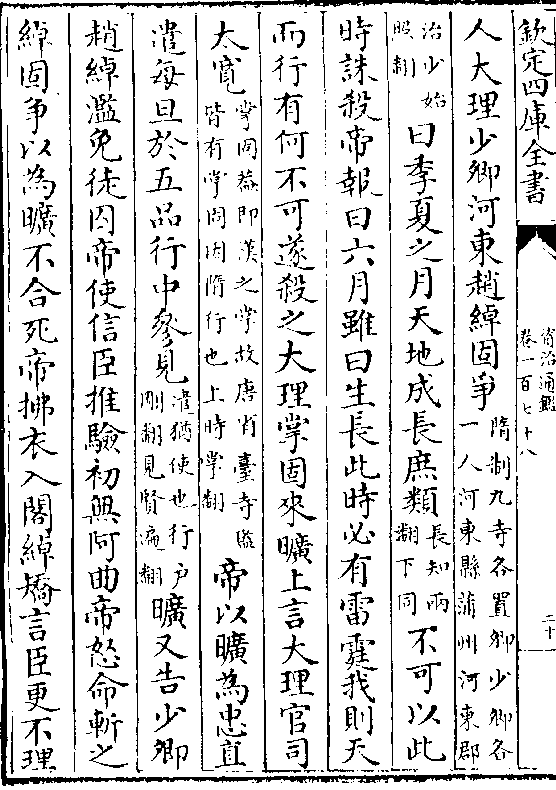 欽定四庫全書
資治通鑑
卷一百七十八
二十
人大理少卿河東趙綽固爭隋制九寺各置卿少卿各一人河東縣蒲州河東郡
治少始照翻曰季夏之月天地成長庶類長知兩翻下同不可以此
時誅殺帝報曰六月雖曰生長此時必有雷霆我則天
而行有何不可遂殺之大理掌固來曠上言大理官司
太寛掌固蓋即漢之掌故唐省臺寺監皆有掌固因隋行也上時掌翻帝以曠為忠直
遣每旦於五品行中參見遣猶使也行户剛翻見賢遍翻曠又告少卿
趙綽濫免徒囚帝使信臣推驗初無阿曲帝怒命斬之
綽固爭以為曠不合死帝拂衣入閤綽矯言臣更不理